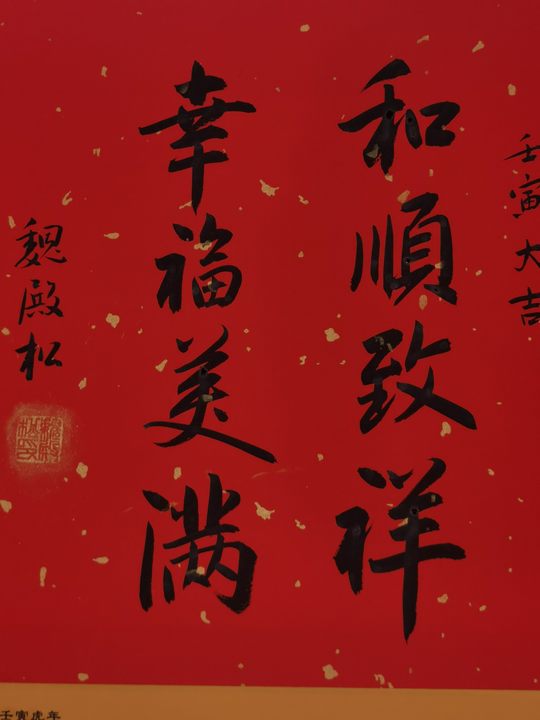 壬寅大吉
和順致祥
幸福美满
魏殿松
壬寅虎年